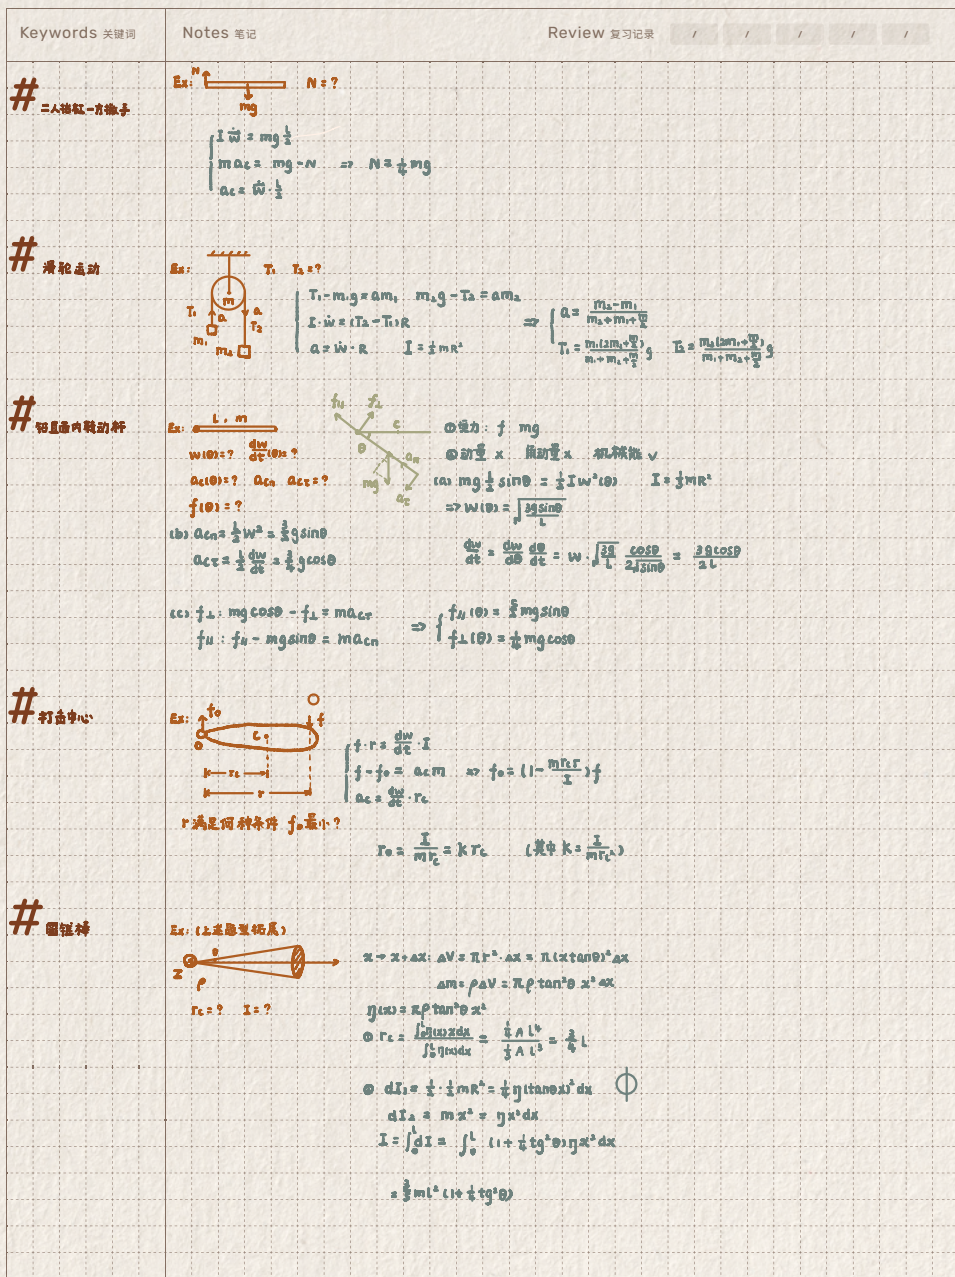 Keywords 关键词 Notes 笔记 Review 复习记录 / / / / /
# 二人抬杠一方撤手
Ex: N mg N = ?
I ẇ = mg L/2
m ac = mg - N => N = 1/4 mg
ac = ẇ · L/2
# 滑轮运动
Ex: T1 T2 = ?
m T1 a a T2 m1 m2
T1 - m1g = am1 m2g - T2 = am2
I · ẇ = (T2 - T1)R
a = ẇ · R I = 1/2 mR²
=> a = (m2 - m1)/(m2 + m1 + m/2)
T1 = m1(2m2 + m/2)/(m1 + m2 + m/2) g T2 = m2(2m1 + m/2)/(m1 + m2 + m/2) g
# 铅直面内转动杆
Ex: L , m
w(θ) = ? dw/dt (θ) = ?
ac(θ) = ? acn acτ = ?
f(θ) = ?
f∥ f⊥ c θ an mg aτ
①受力: f mg
②动量 x 角动量 x 机械能 √
(a) mg L/2 sinθ = 1/2 I w²(θ) I = 1/3 mR²
=> w(θ) = √(3gsinθ/L)
dw/dt = dw/dθ dθ/dt = w · √(3g/L) cosθ/(2√sinθ) = 3gcosθ/2L
(b) acn = L/2 w² = 3/2 gsinθ
acτ = L/2 dw/dt = 3/4 gcosθ
(c) f⊥: mgcosθ - f⊥ = macτ
f∥ : f∥ - mgsinθ = macn
=> f∥(θ) = 5/2 mgsinθ
f⊥(θ) = 1/4 mgcosθ
# 打击中心
Ex: f0 o c f rc r
r 满足何种条件 f0最小?
f · r = dw/dt · I
f - f0 = ac m => f0 = (1 - mrcr/I) f
ac = dw/dt · rc
r0 = I/mrc = k rc (其中 k = I/mrc²)
# 圆锥棒
Ex: (上述题型拓展)
θ Z ρ
rc = ? I = ?
x → x+Δx: ΔV = πr² · Δx = π(xtanθ)²Δx
Δm = ρΔV = πρtan²θ x²Δx
η(x) = πρtan²θ x²
① rc = ∫₀ᴸη(x)xdx / ∫₀ᴸη(x)dx = 1/4 A L⁴ / 1/3 A L³ = 3/4 L
② dI1 = 1/2 · 1/2 mR² = 1/4 η(tanθx)²dx
dI2 = mx² = ηx²dx
I = ∫₀ᴸ dI = ∫₀ᴸ (1 + 1/4 tg²θ)ηx²dx
= 3/5 mL² (1 + 1/4 tg²θ)